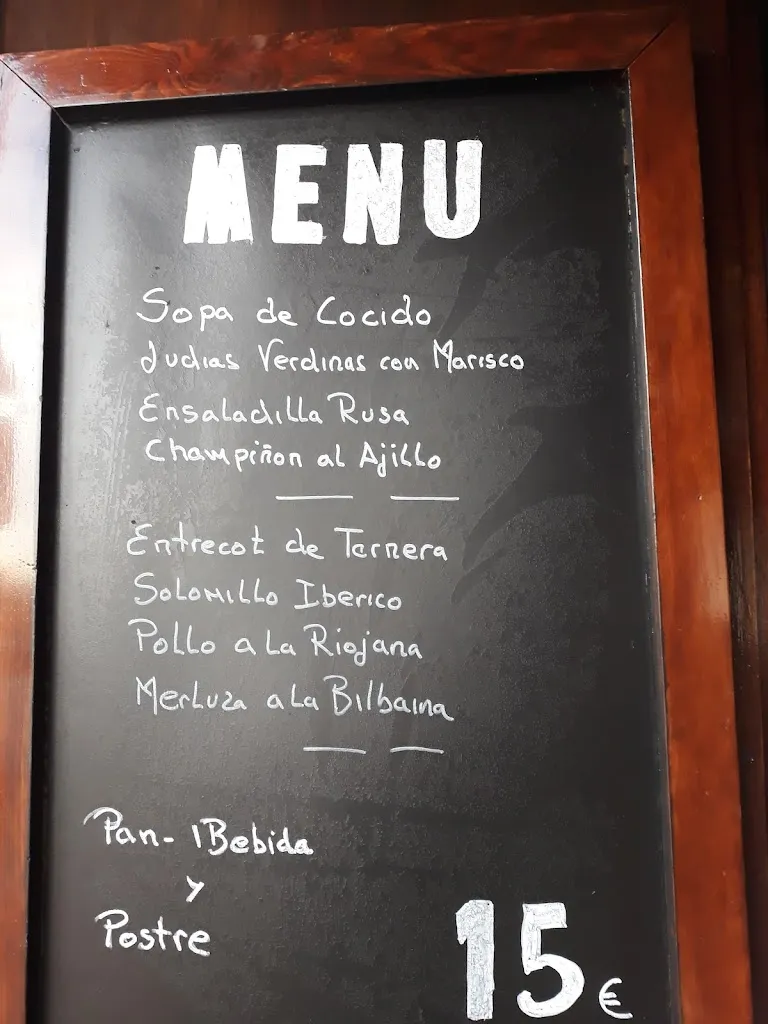 MENU
Sopa de Cocido
Judias Verdinas con Marisco
Ensaladilla Rusa
Champiñon al Ajillo
Entrecot de Ternera
Solomillo Iberico
Pollo a La Riojana
Merluza a La Bilbaina
Pan- 1 Bebida
y
Postre
15 €